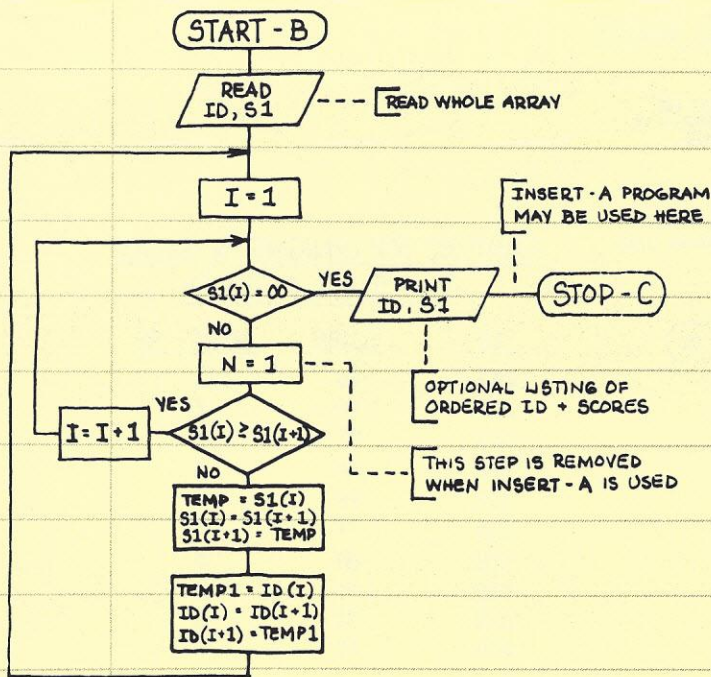 START - B
READ
ID, S1
READ WHOLE ARRAY
I = 1
INSERT - A PROGRAM
MAY BE USED HERE
S1(I) = ∞
YES
PRINT
ID, S1
STOP - C
NO
N = 1
OPTIONAL LISTING OF
ORDERED ID + SCORES
YES
I = I + 1
S1(I) ≥ S1(I+1)
THIS STEP IS REMOVED
WHEN INSERT - A IS USED
NO
TEMP = S1(I)
S1(I) = S1(I+1)
S1(I+1) = TEMP
TEMP1 = ID(I)
ID(I) = ID(I+1)
ID(I+1) = TEMP1